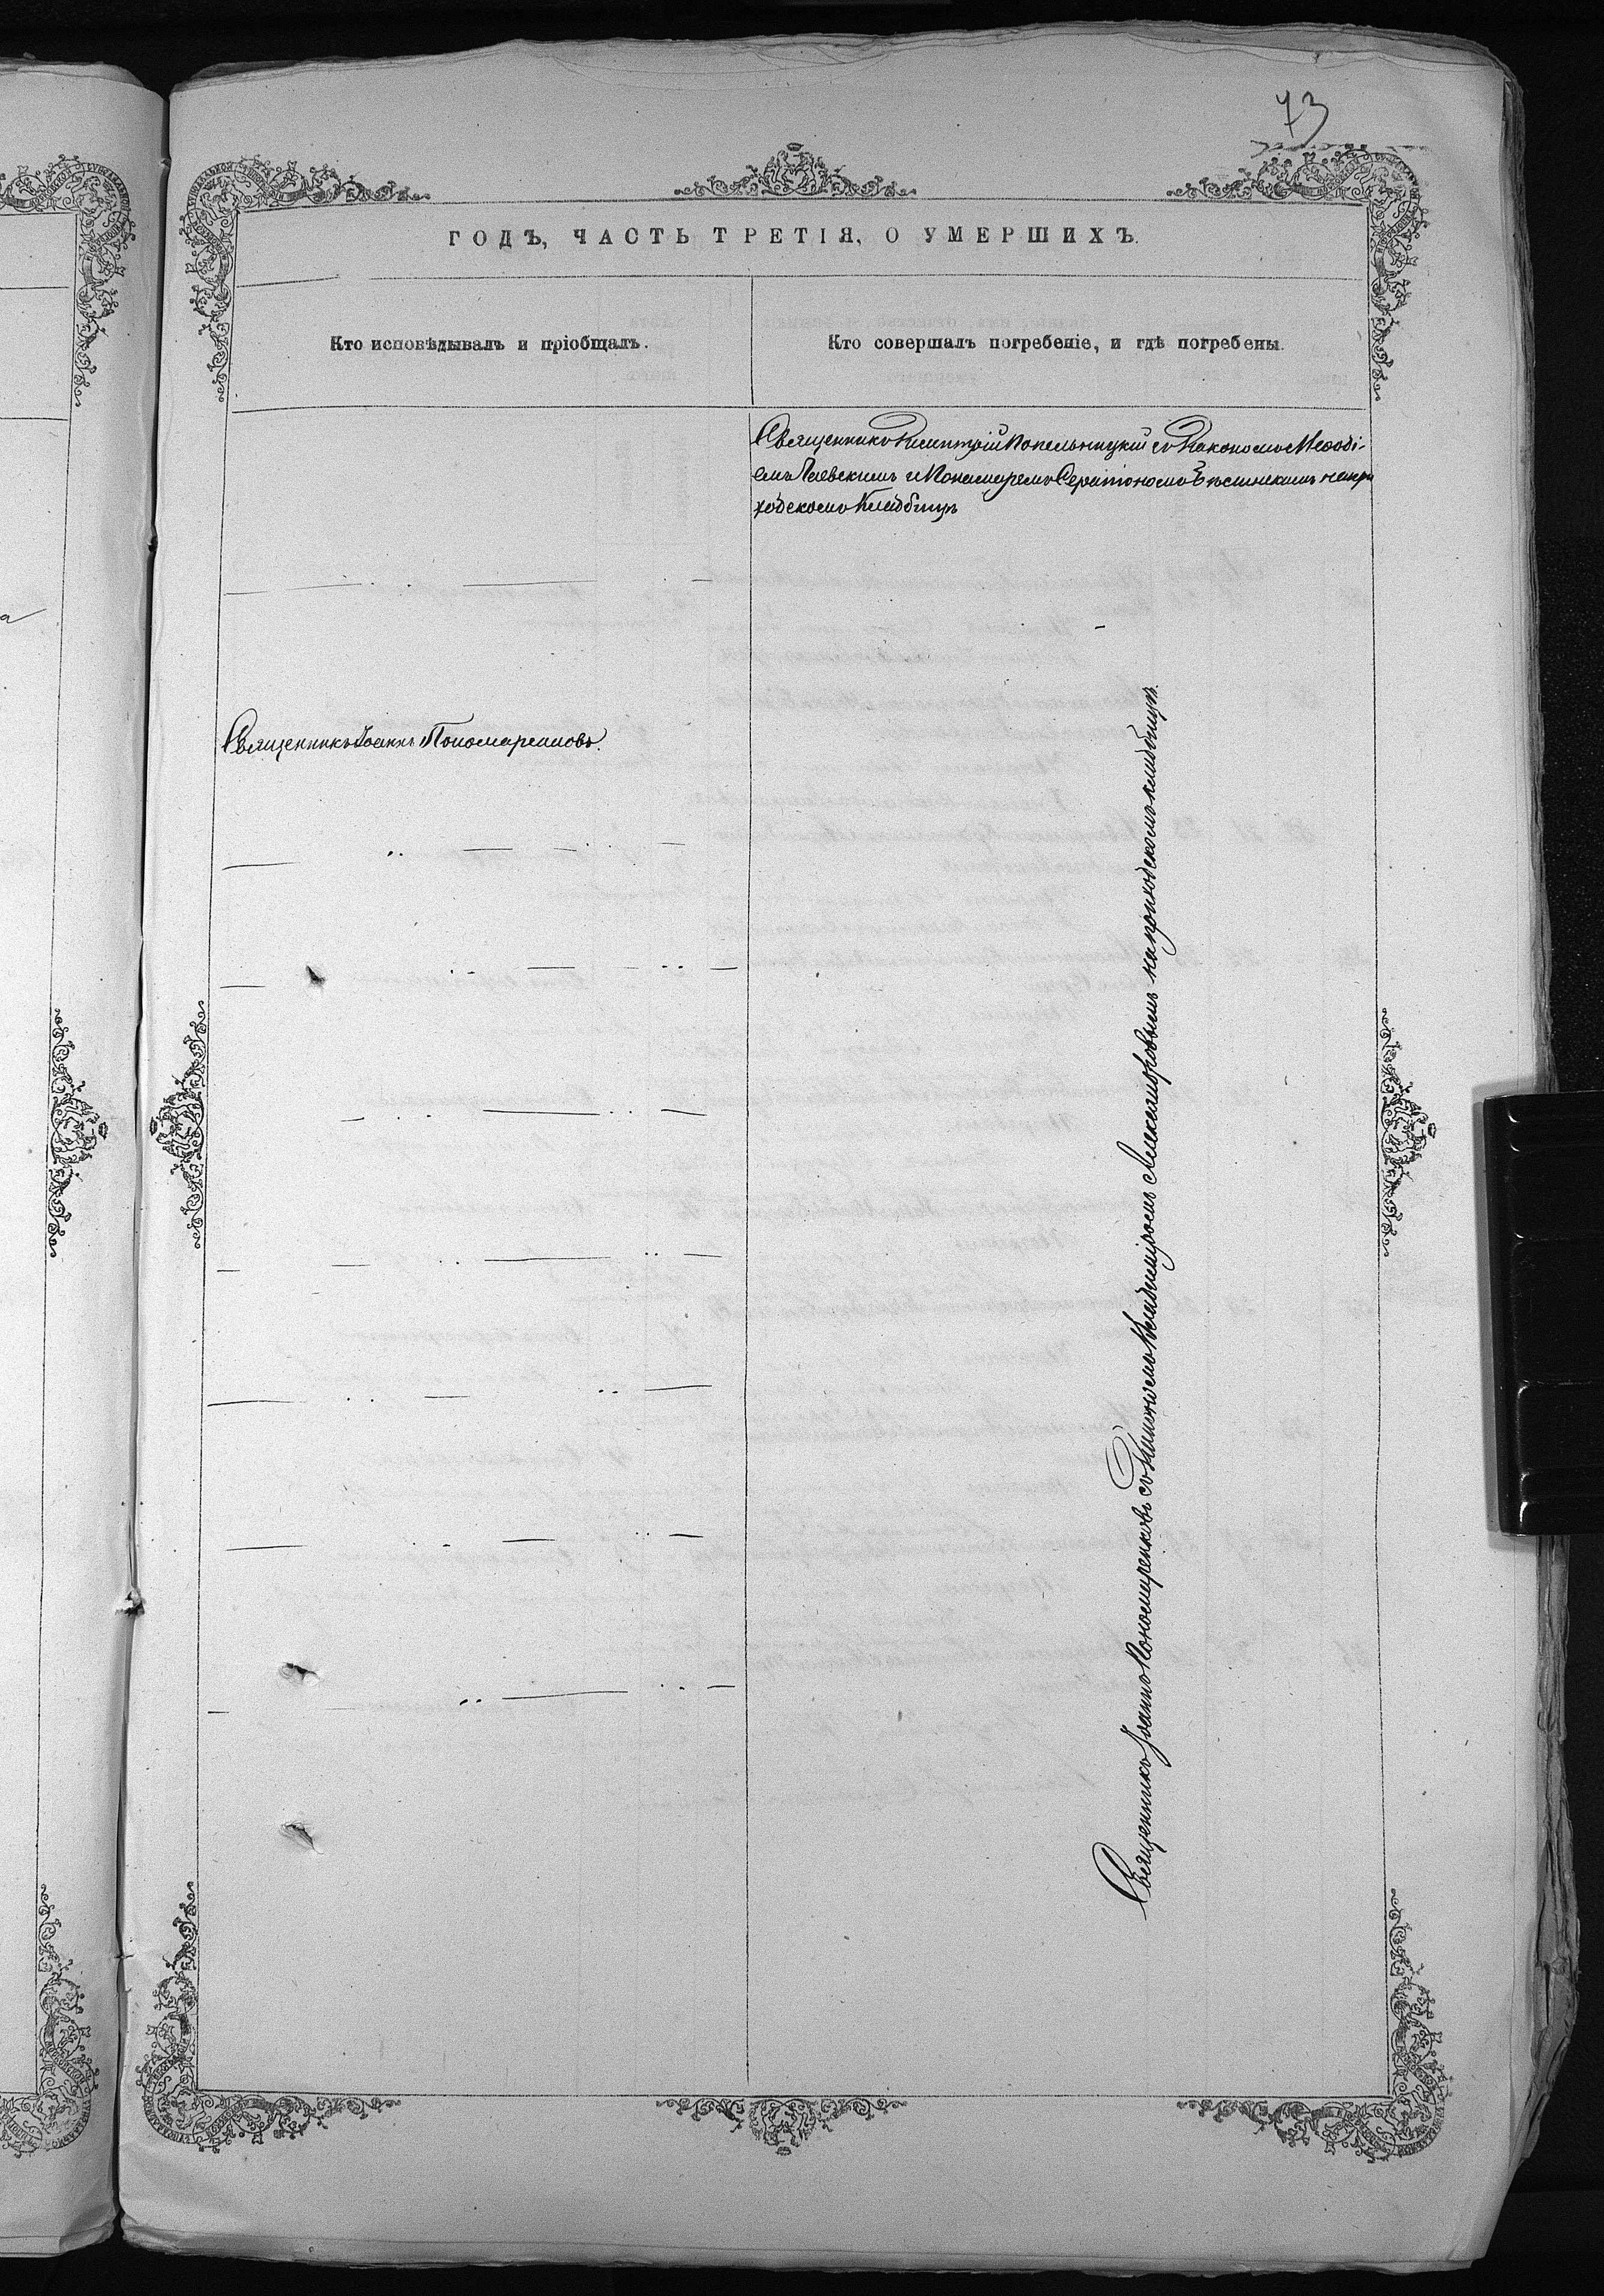 73
ГОДЪ, ЧАСТЬ ТРЕТІЯ, О УМЕРШИХЪ.
Кто исповѣдывалъ и пріобщалъ.
Кто совершалъ погребеніе, и гдѣ погребены.
Священникъ Димитрій Попельницкій съ Диакономъ Меѳоді-
емъ Раевскимъ и Пономаремъ на при
ходскомъ Кладбищѣ
Священникъ Іоаннъ Пономаренковъ.
Священникъ Іоаннъ Пономаренковъ съ Владиміромъ Александровымъ на приходскомъ кладбищѣ.